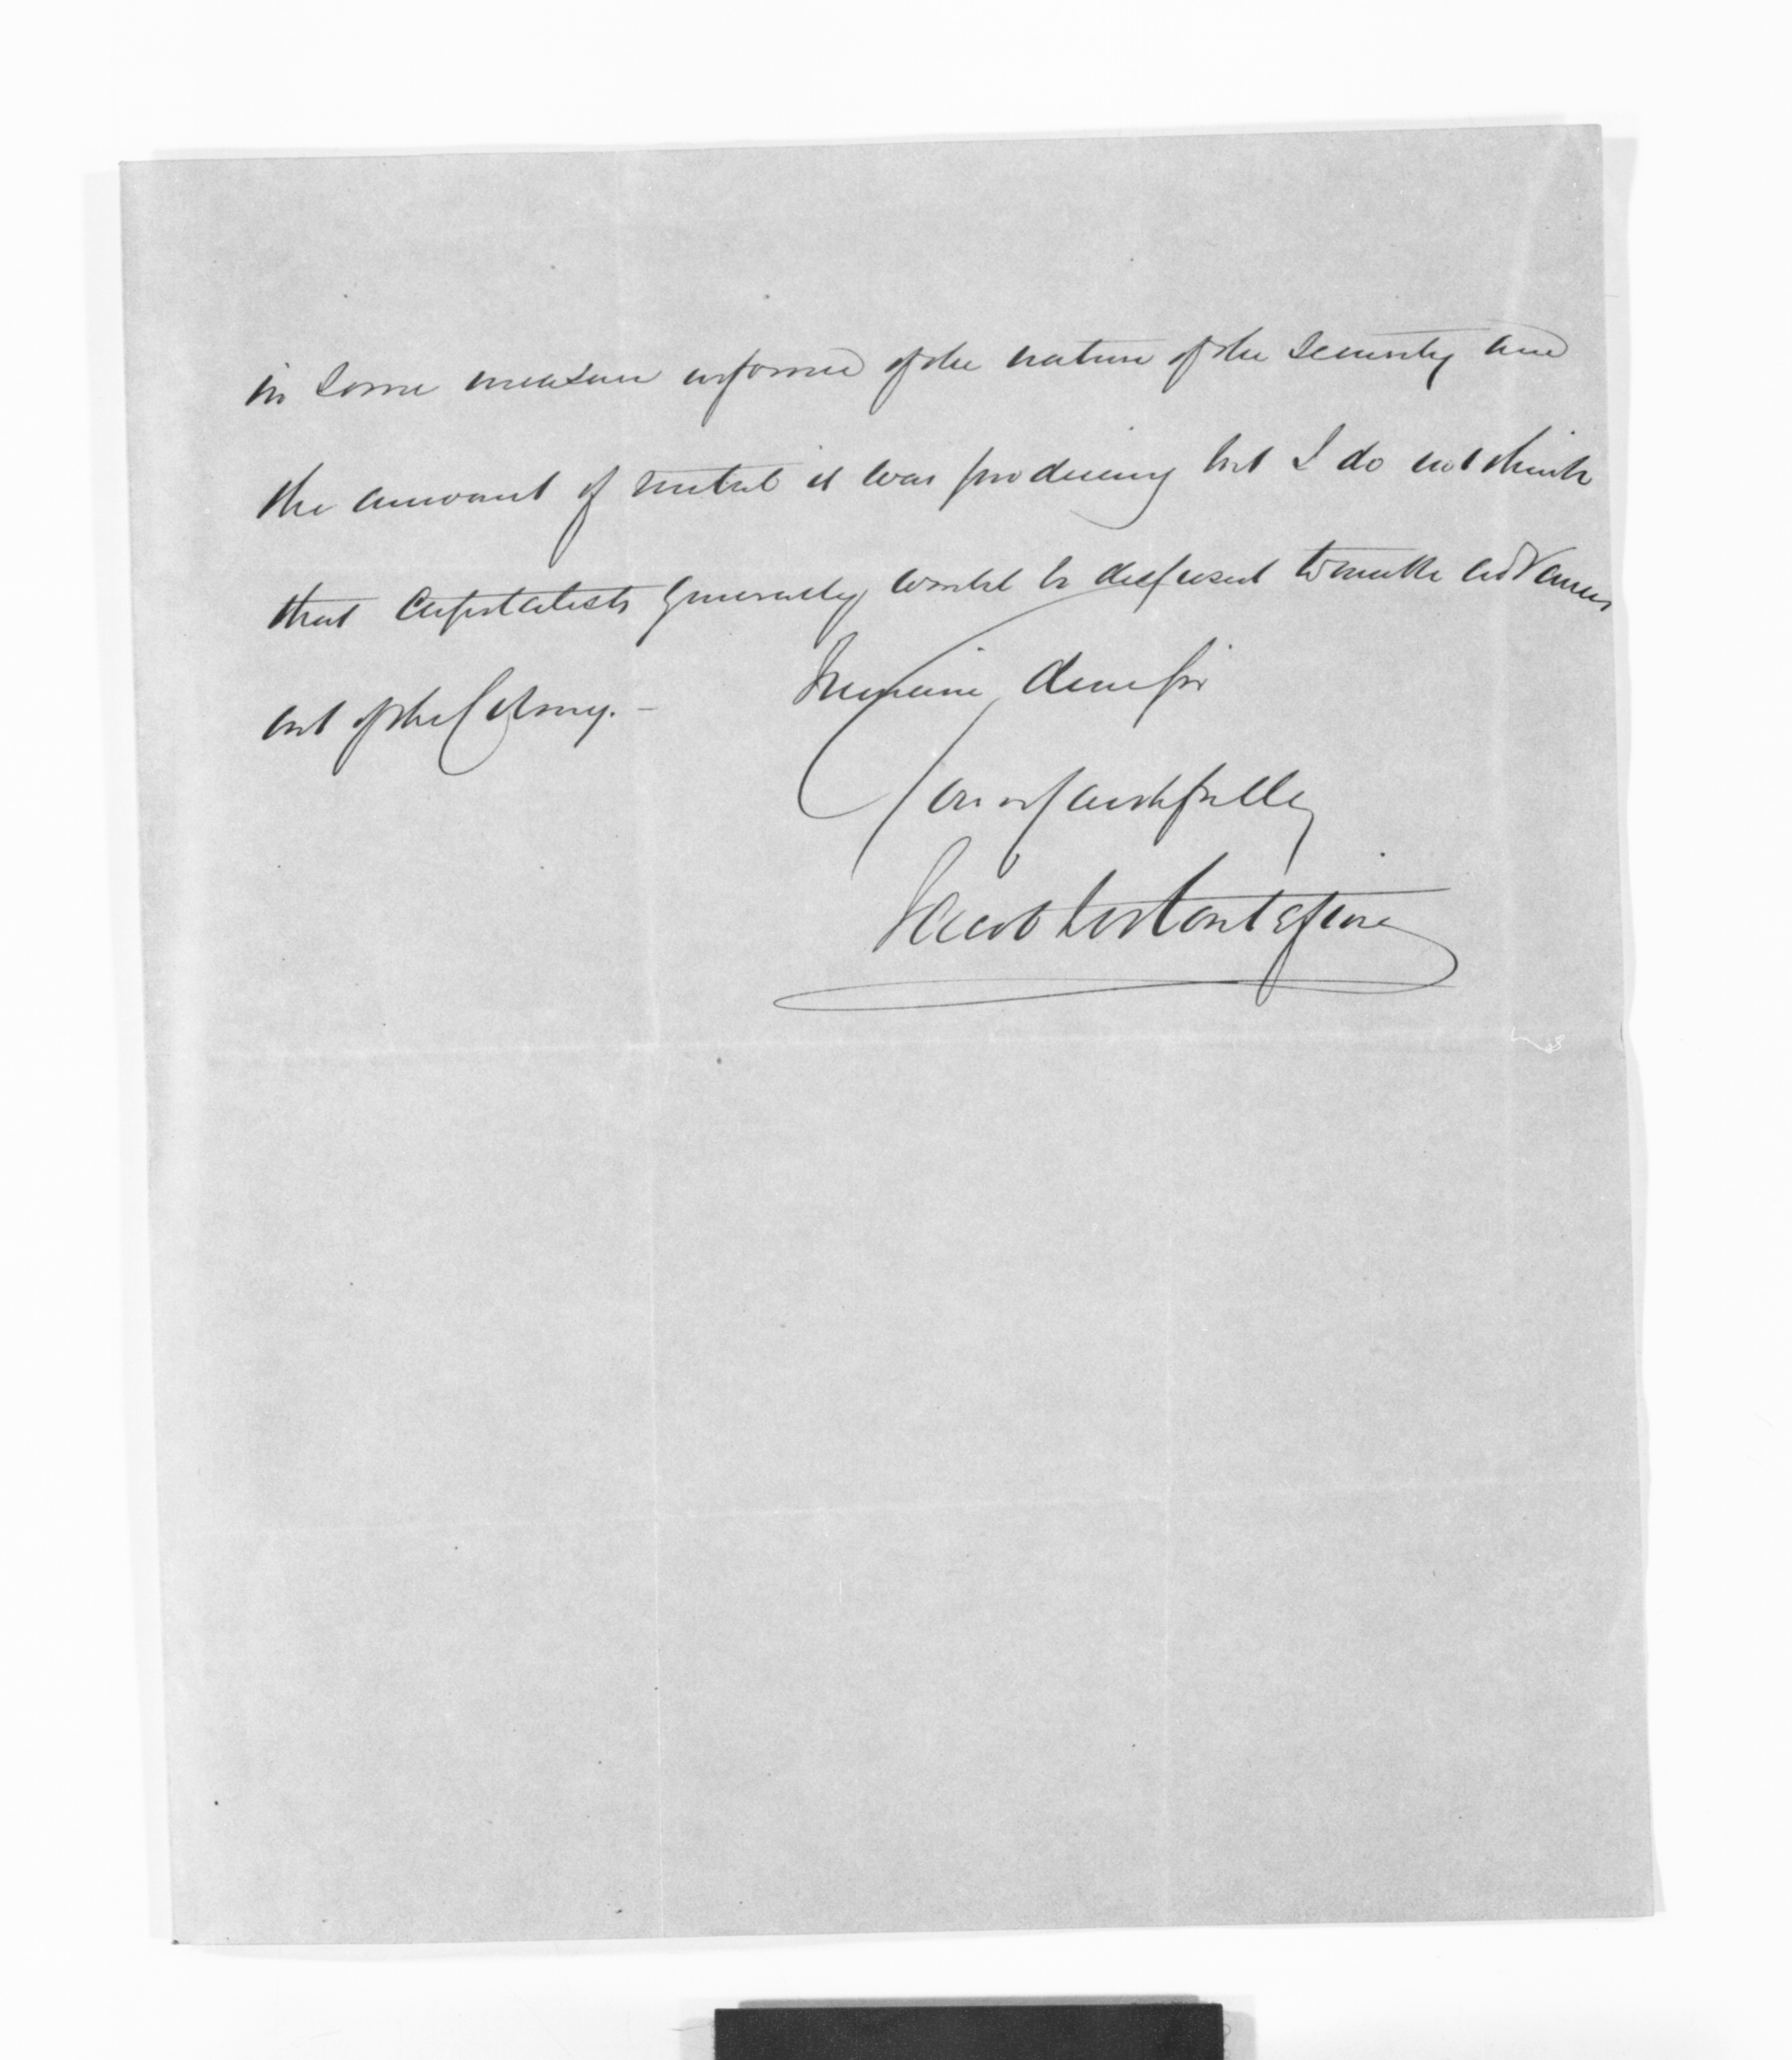 in some measure informed of the nature of the security and
the amount of metal it was producing but I do not think
that Capitalists generally would be disposed to make advances
out of the Colony. —
I remain, dear Sir
Yours faithfully
Jacob Montefiore